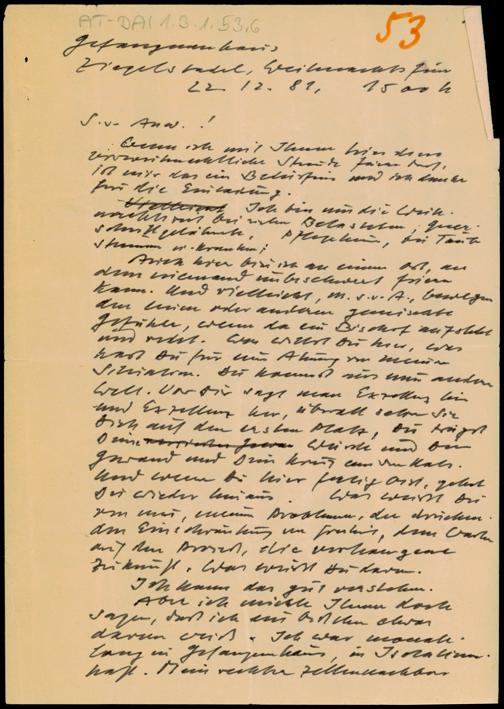 AT-DAI 1.3.1.53.6
53
Gefangenenhaus
Ziegelstadel, Weihnachtsfeier
22. 12. 81, 15 00 h
S. v. Anw. !
Wenn ich mit Ihnen hier diese
vorweihnachtliche Stunde feiern darf,
ist mir das ein Bedürfnis und ich danke
für die Einladung.
Vielleicht Ich bin um die Weih-
nachtszeit bei vielen Belasteten, quer-
schnittgelähmte, Pflegeheim, bei Taub-
stummen u. Kranken;
Auch hier bin ich an einem Ort, an
dem niemand unbeschwert feiern
kann. Und vielleicht, m. s. v. A., bewegen
den einen oder anderen gemischte
Gefühle, wenn da ein Bischof auftaucht
und redet. Was willst Du hier, was
hast Du für eine Ahnung von meiner
Situation. Du kommst aus einer anderen
Welt. Vor Dir sagt man Exzellenz hin
und Exzellenz her, überall setzen Sie
Dich auf den ersten Platz, Du trägst
Deine Würde und Dein
Gewand und Dein Kreuz um den Hals.
Und wenn Du hier fertig bist, gehst
Du wieder hinaus. Was weißt Du
von mir, meinen Problemen, der drücken-
den Einschränkung der Freiheit, dem Warten
auf den Prozeß, die verhangene
Zukunft. Was weißt Du davon.
Ich kann das gut verstehen.
Aber ich möchte Ihnen doch
sagen, daß ich ein bißchen etwas
davon weiß. Ich war monate-
lang in Gefangenenhaus, in Isolations-
haft. Mein rechter Zellennachbar